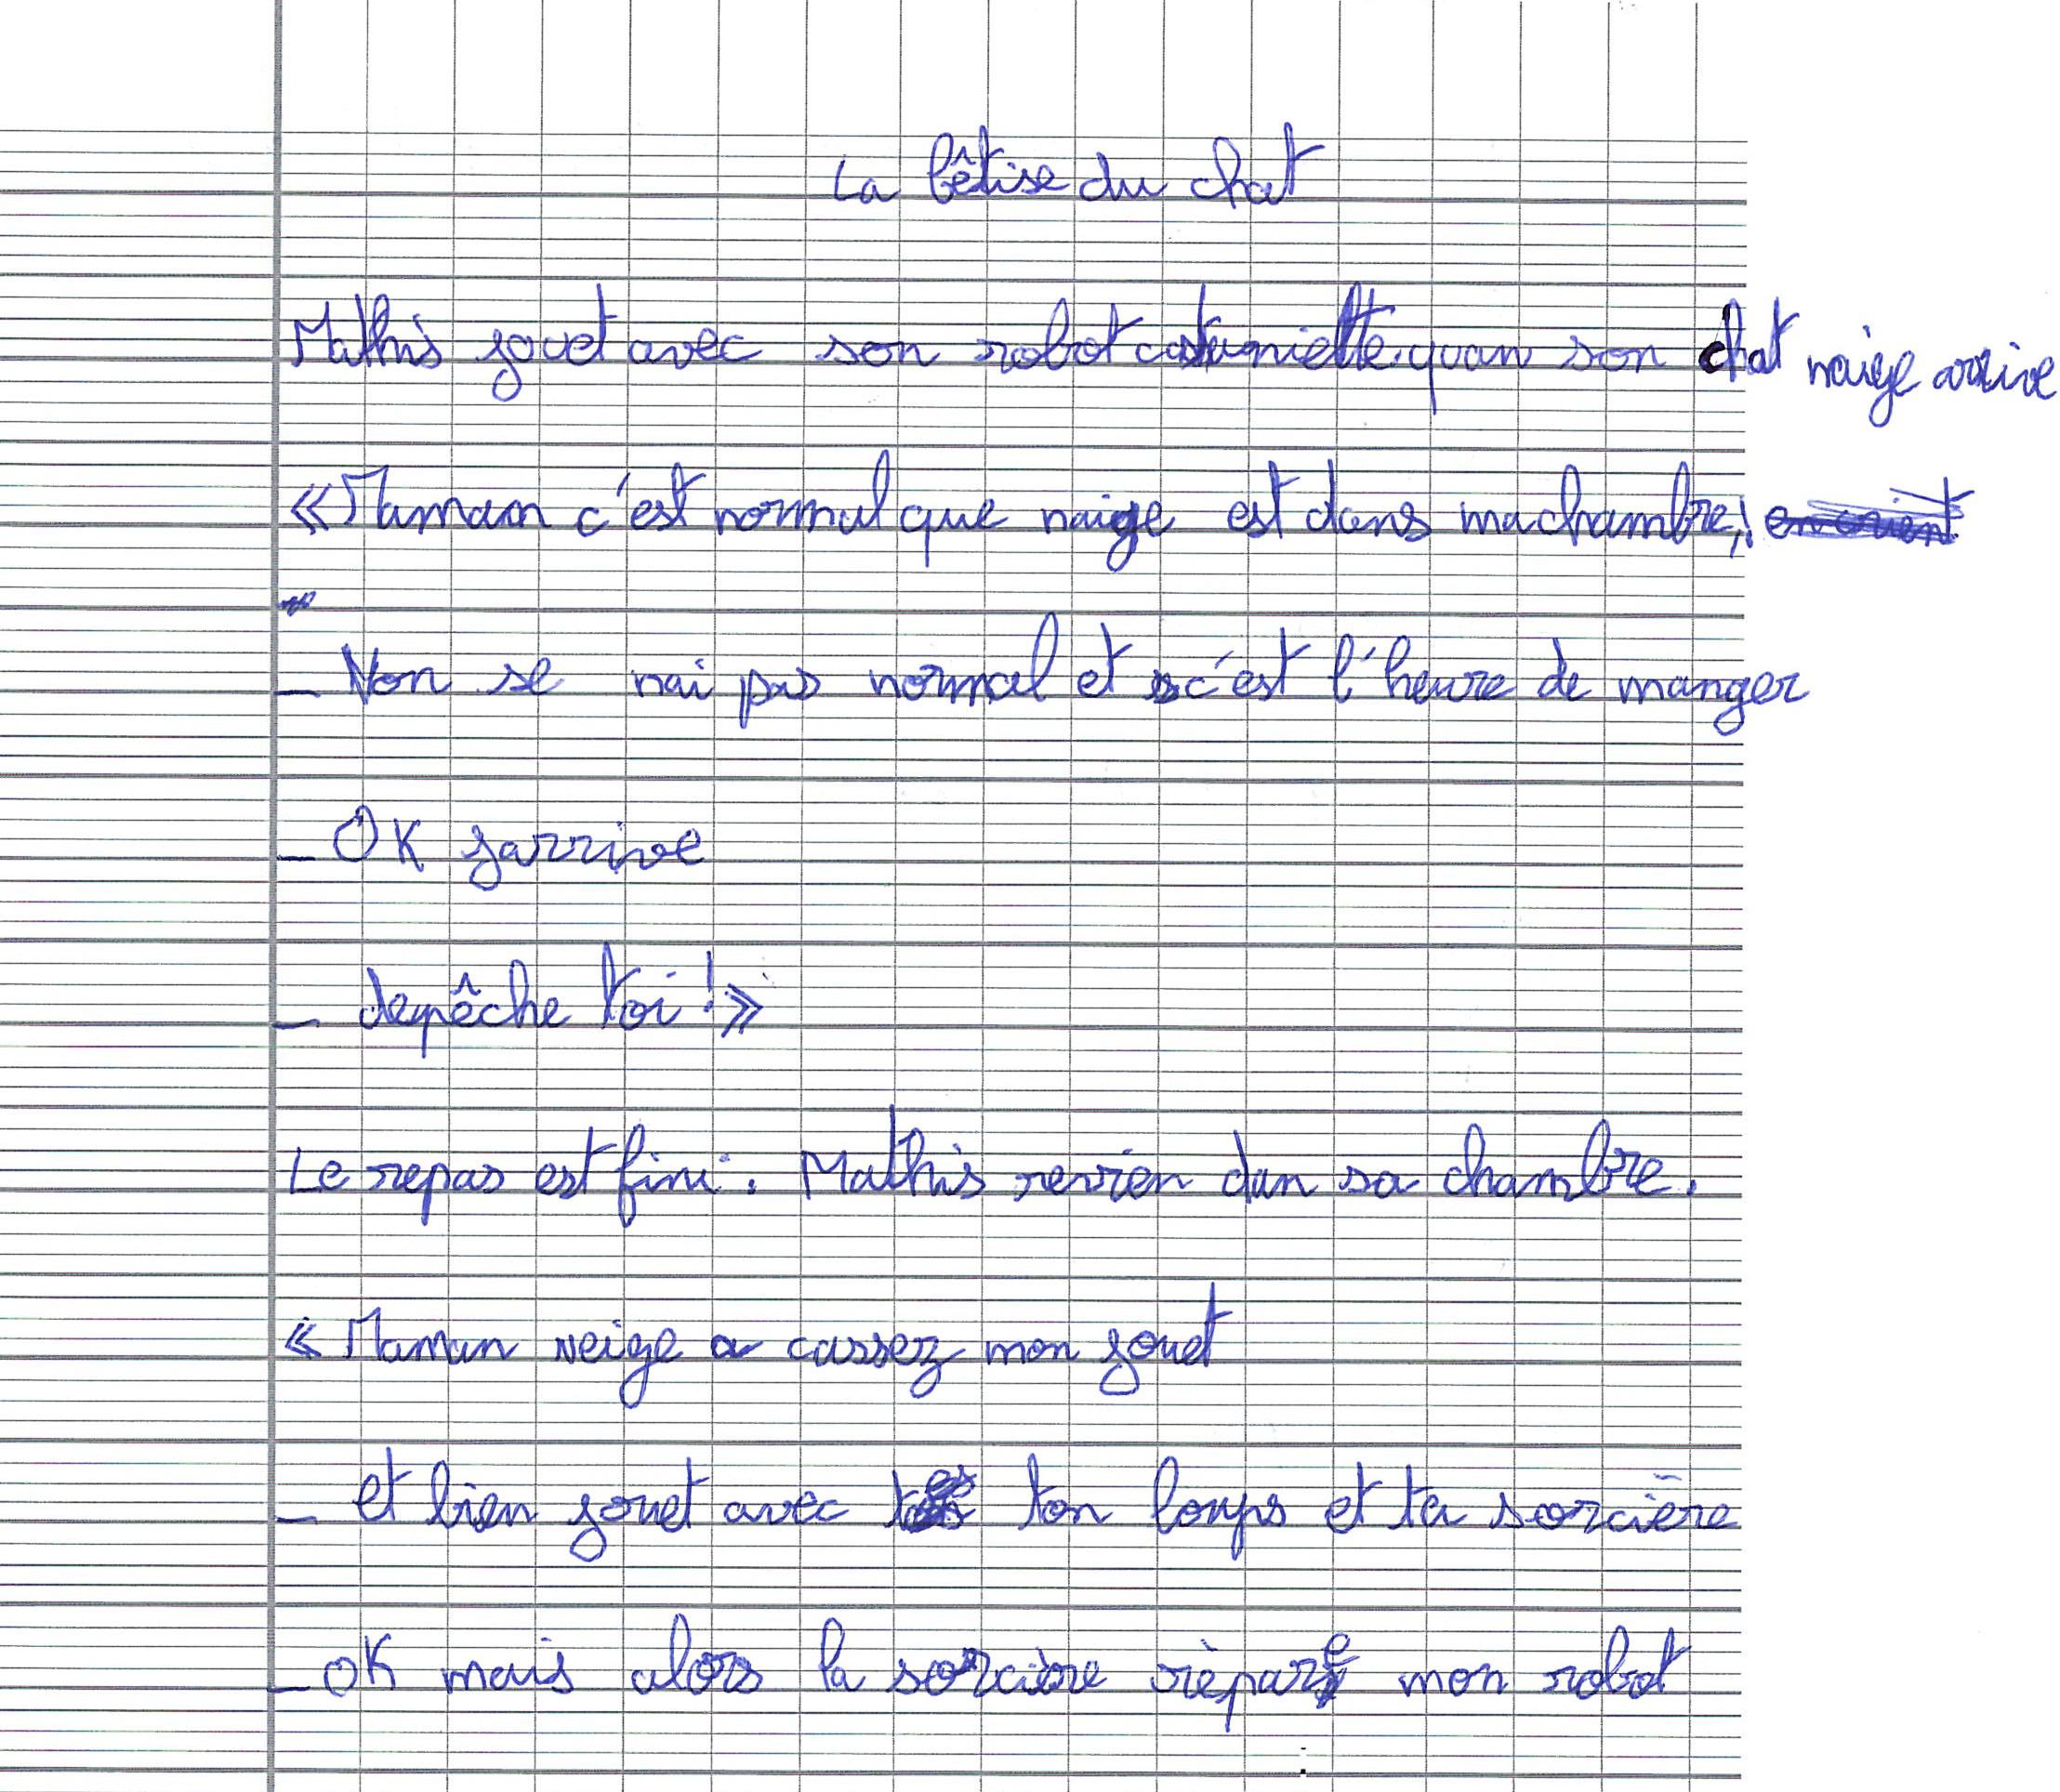 La bêtise du chat
Mathis jouet avec son robot quan son chat naige arrive
«Maman c'est normal que naige est dans ma chambre,!
- Non se nai pas normal et c'est l'heure de manger
- OK jarrive
- depêche toi !»
Le repas est fini. Mathis revien dan sa chambre.
« Maman neige a cassez mon jouet
- et bien jouet avec ton loups et ta sorcière
- OK mais alors la sorcière rèpare mon robot